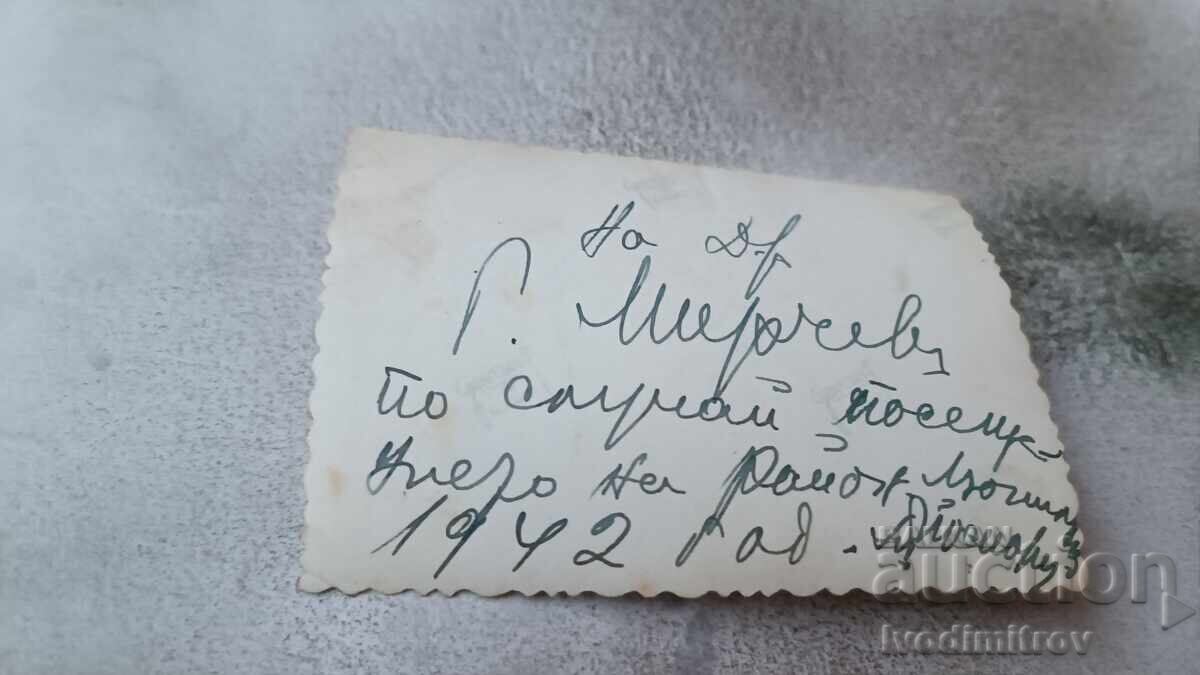 На Др.
Г. Мирчевъ
по случай посеще-
нието на район
1942 год.
auction
Ivodimitrov